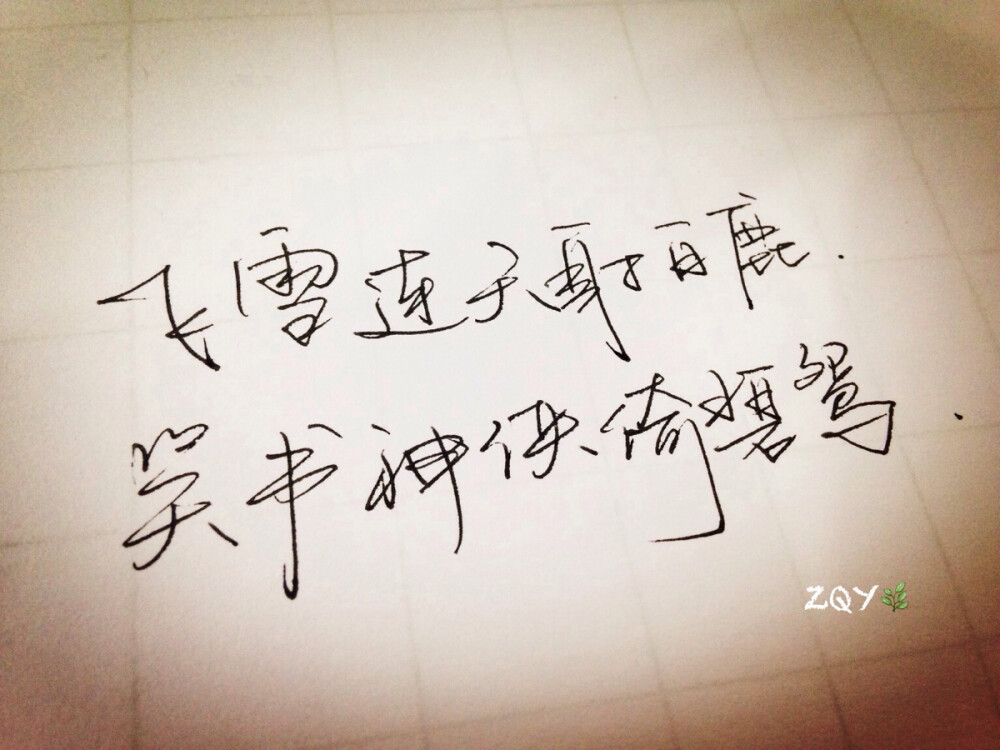 飞雪连天射百鹿.
笑书神侠倚碧鸳.
ZQY🌿